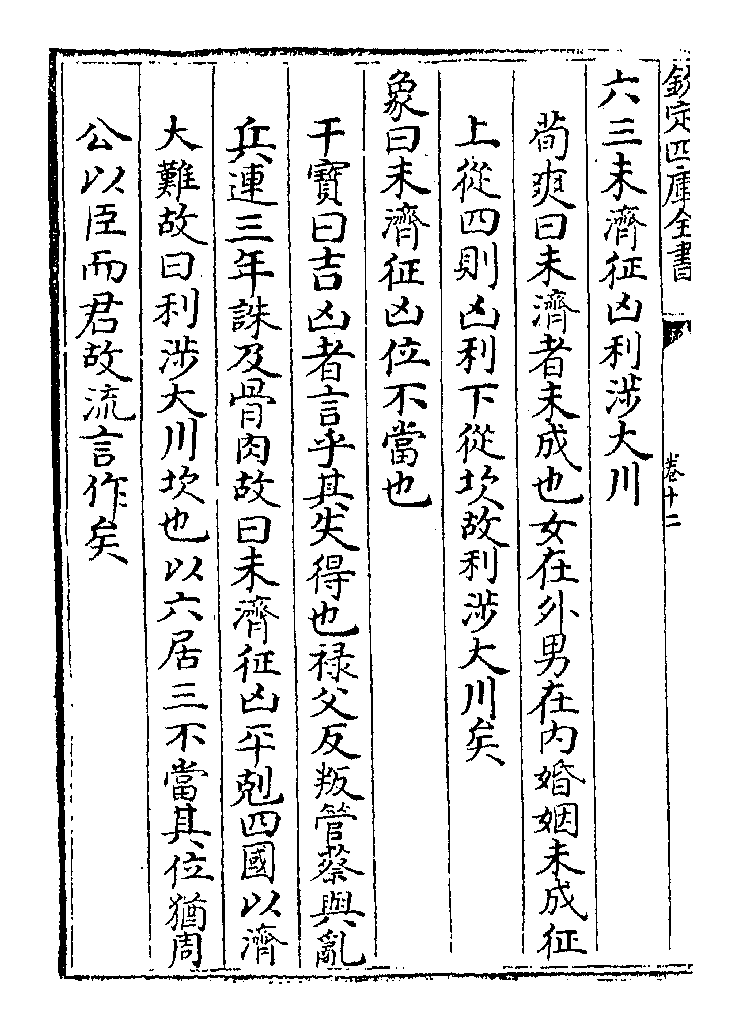 欽定四庫全書
卷十二
六三未濟征凶利涉大川
荀爽曰未濟者未成也女在外男在内婚姻未成征
上從四則凶利下從坎故利涉大川矣
象曰未濟征凶位不當也
干寶曰吉凶者言乎其失得也祿父反叛管蔡與亂
兵連三年誅及骨肉故曰未濟征凶平剋四國以濟
大難故曰利涉大川坎也以六居三不當其位猶周
公以臣而君故流言作矣